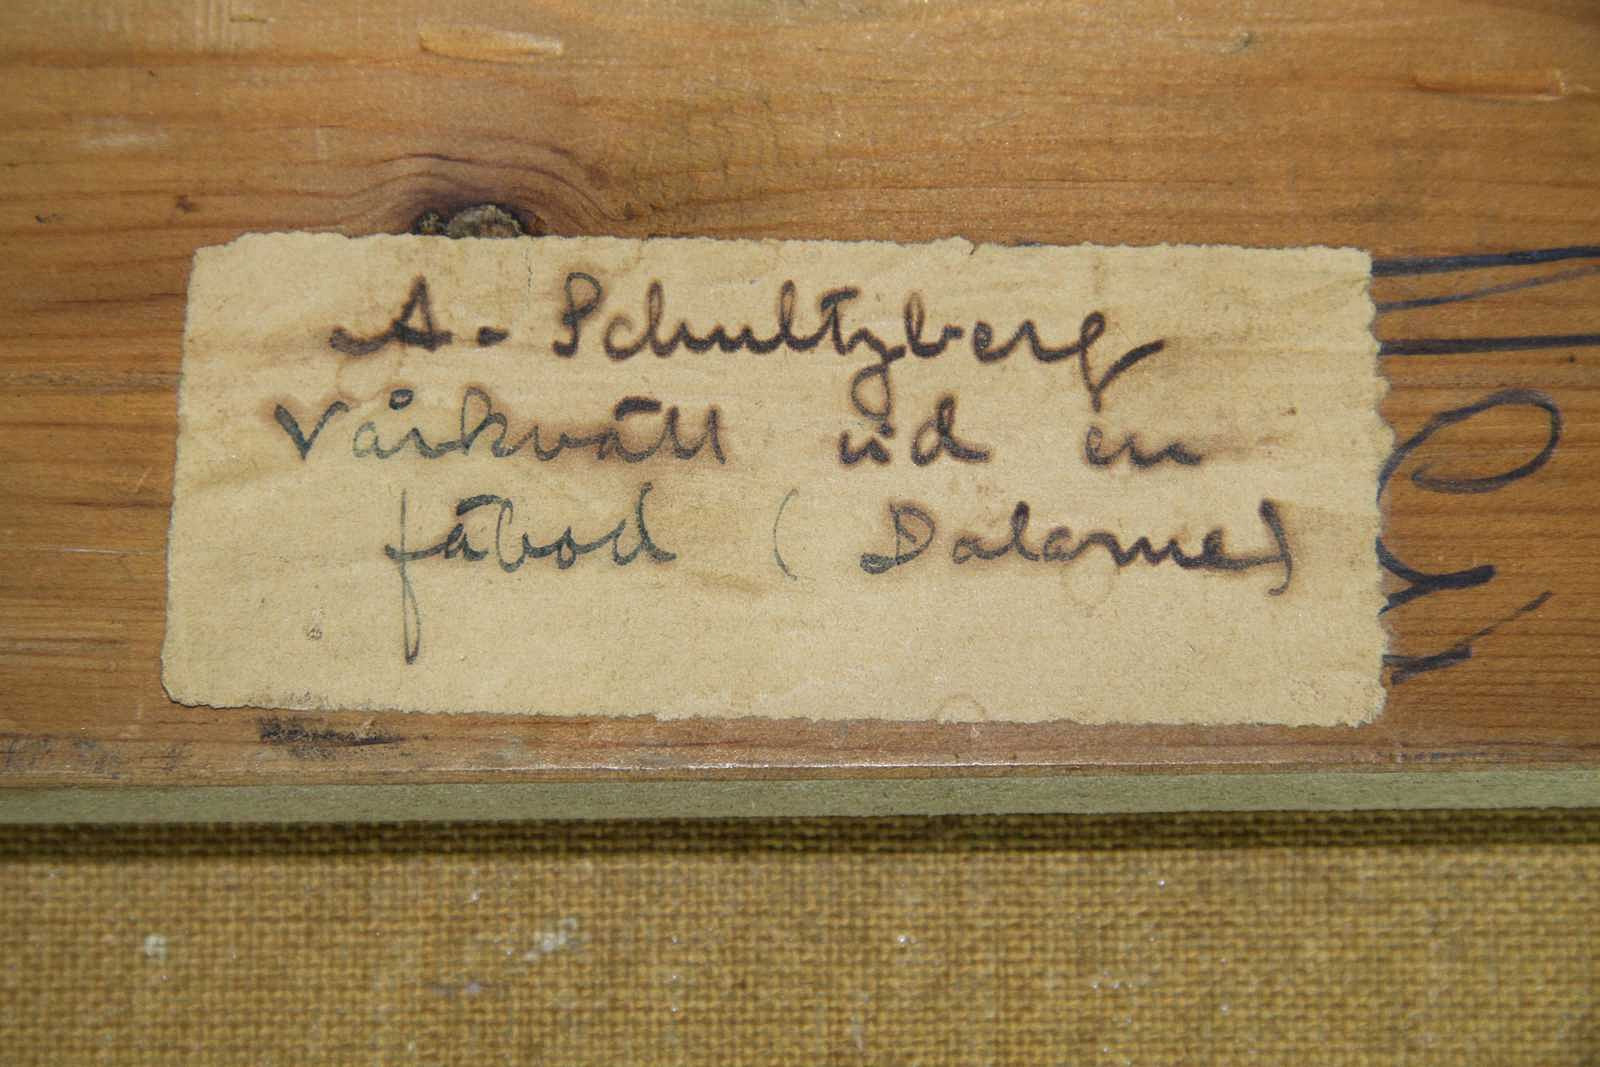 A. Schultzberg
Vårkväll vid en
fäbod (Dalarne)